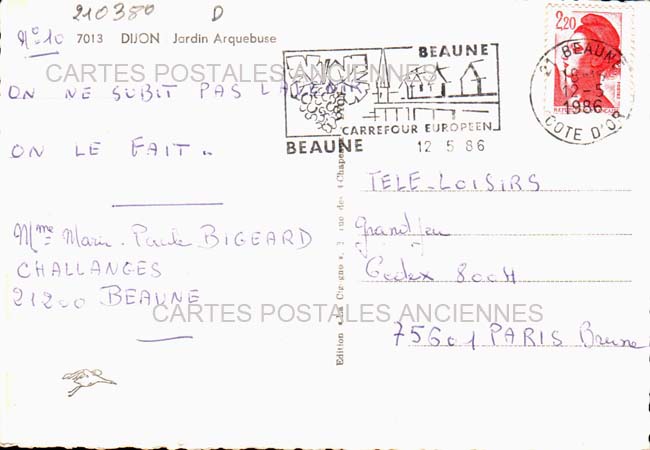 210380 D
N° 10 7013 DIJON Jardin Arquebuse
CARTES POSTALES ANCIENNES
ON NE SUBIT PAS L'AVENIR
ON LE FAIT..
Mme Marie-Paule BIGEARD
CHALLANGES
21200 BEAUNE
BEAUNE
CARREFOUR EUROPEEN
BEAUNE 12 5 86
2,20
21 BEAUNE
12-5
1986
COTE D'OR
Edition "La Cigogne", rue des
TELE-LOISIRS
Grand jeu
Cedex 8004
75601 PARIS Brune
CARTES POSTALES ANCIENNES